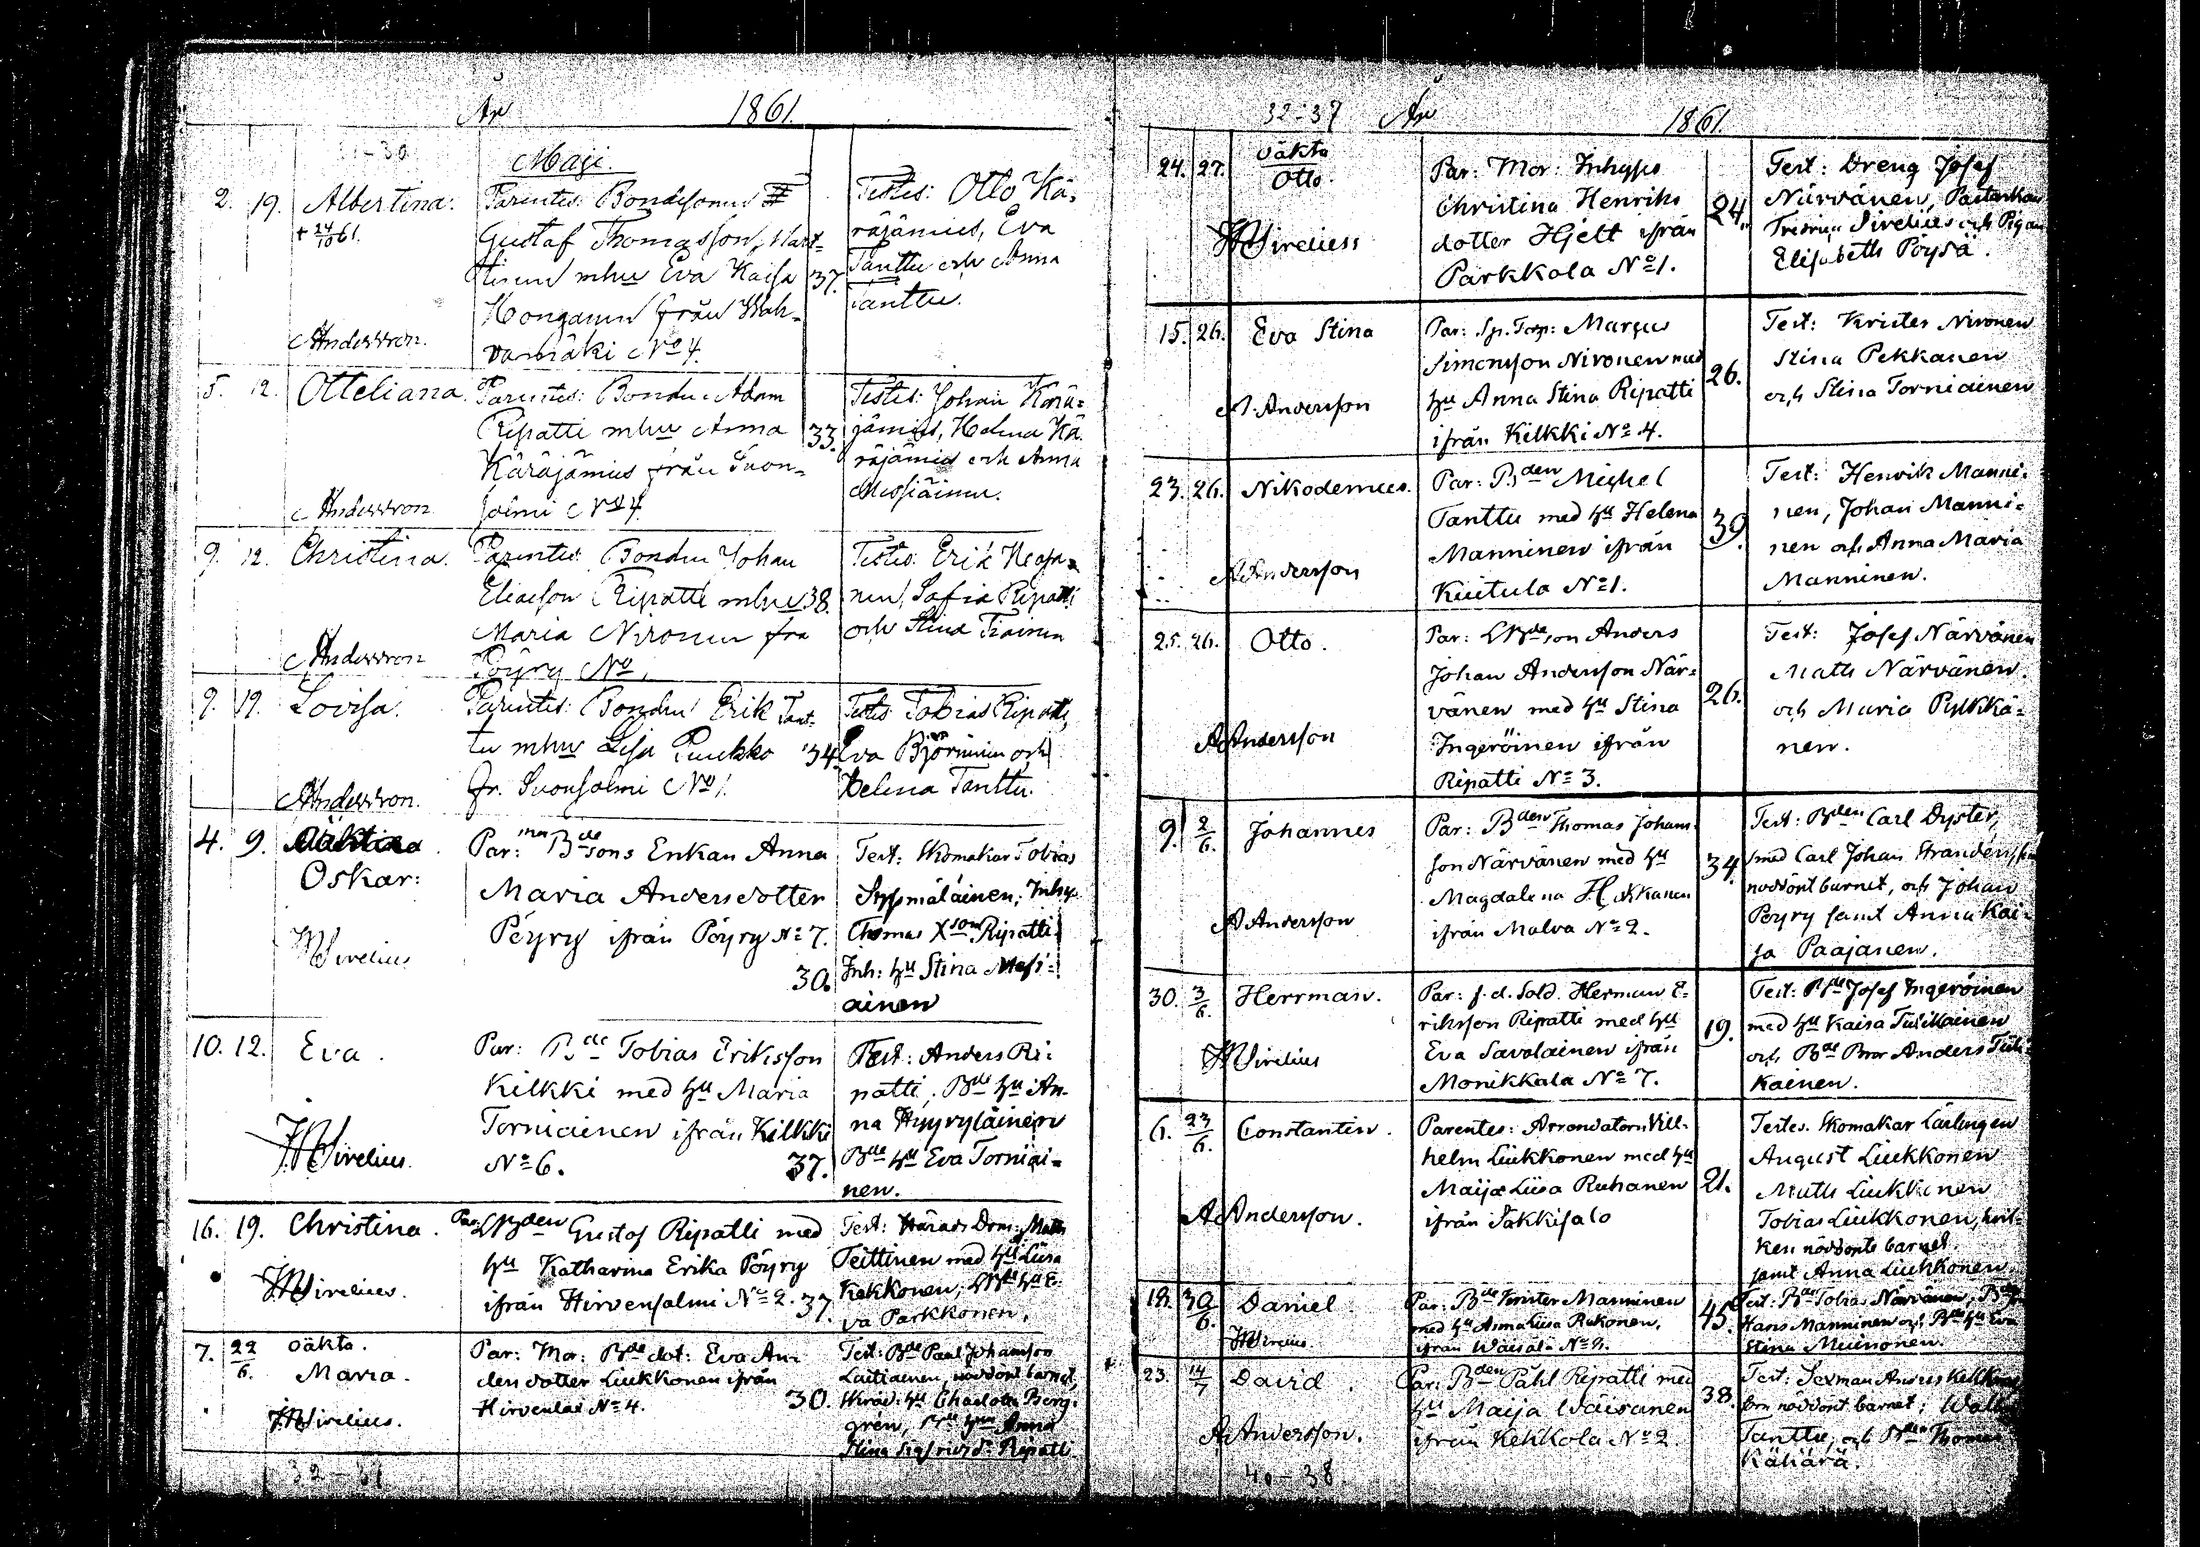 År 1861.
Maji.
2. 19. Albertina.
+ 24/10 61.
Andersson.
Parentes: Bondesonen
Gustaf Thomasson, Mart-
tinen mhu Eva Kaisa
Honganen från Wah-
vamäki No 4.
37.
Testes: Otto Kä-
räjämies, Eva
Tanttu och Anna
Tanttu.
5. 12. Otteliana.
Andersson
Parentes: Bonden Adam
Ripatti mhu Anna
Käräjämies från Suon-
salmi No 4.
33.
Testes: Johan Kärä-
jämies, Helena Kä-
räjämies och Anna
Massiäinen.
9. 12. Christina.
Andersson
Parentes: Bonden Johan
Eliasson Ripatti mhu
Maria Nironen fra
Pöyry No
38.
Testes: Erik
nen, Sofia Ripatti
och Stina Tiainen
9. 19. Lovisa.
Andersson.
Parentes: Bonden Erik Tant-
tu mhu Lisa Puukko
fr. Suonsalmi No 1.
34.
Testes Tobias Ripatti,
Eva Björninen och
Helena Tanttu.
4. 9.
Oskar:
Sirelius
Par: Bdesons Enkan Anna
Maria Andersdotter
Pöyry ifrån Pöyry No 7.
30.
Test: Skomakar Tobias
Syssmäläinen, Inhys
Thomas Xson Ripatti
Inh: hu Stina Messi-
äinen
10. 12. Eva.
Sirelius.
Par: Bde Tobias Eriksson
Kilkki med hu Maria
Torniainen ifrån Kilkki
No 6.
37.
Test: Anders Ri-
patti, Bde hu An-
na Hyyryläinen
Bde hu Eva Torniai-
nen.
16. 19. Christina.
Sirelius.
Par: Gustaf Ripatti med
hu Katharina Erika Pöyry
ifrån Hirvensalmi No 2.
37.
Test: Härads Dom: Matts
Teittinen med hu Liisa
Kekkonen, hu E-
va Parkkonen.
7. 22/6. Oäkta.
Maria.
Sirelius.
Par: Mor: Bde dot: Eva An-
dersdotter Liukkonen ifrån
No 4.
30.
Test: Bde Paul Johansson
Laitiainen, nöddöpt barnet,
hu Charlotta Berg-
gren, Anna
Stina Sigfridsdr Ripatti.
32-37 År 1861.
24. 27. Oäkta
Otto.
Sirelius
Par: Mor: Inhyses
Christina Henriks
dotter Hjelt ifrån
Parkkola No 1.
24.
Test: Dreng Josef
Närvänen,
Fredric Sirelius och Pigan
Elisabeth Pöysä.
15. 26. Eva Stina
A. Andersson
Par: Sp. Torp: Marcus
Simonsson Nironen med
hu Anna Stina Ripatti
ifrån Kilkki No 4.
26.
Test: Krister Nironen
Stina Pekkanen
och Stina Torniainen
23. 26. Nikodemus.
A Andersson
Par: Bden Michel
Tanttu med hu Helena
Manninen ifrån
Kuitula No 1.
39.
Test: Henrik Manni-
nen, Johan Manni-
nen och Anna Maria
Manninen.
25. 26. Otto.
A Andersson
Par: Anders
Johan Andersson När-
vänen med hu Stina
Ingeröinen ifrån
Ripatti No 3.
26.
Test: Josef Närvänen
Matts Närvänen
och Maria Pylkkä-
nen.
9. 2/6. Johannes
A Andersson
Par: Bden Thomas Johans-
son Närvänen med hu
Magdalena
ifrån Malva No 2.
34.
Test: Bden Carl Dyster,
med Carl Johan
nöddöpt barnet, och Johan
Pöyry samt Anna Kai-
sa Paajanen.
30. 3/6. Herrman.
Sirelius
Par: f. d. Sold. Herman E-
riksson Ripatti med hu
Eva Savolainen ifrån
Monikkala No 7.
19.
Test: Josef Ingeröinen
med hu Kaisa Tulikainen
och Bde Bror Anders Tuli-
kainen.
6. 23/6. Constantin.
A Andersson.
Parentes: Arrendatorn Vill-
helm Liukkonen med hu
Maija Liisa Ruhanen
ifrån Säkkisalo
21.
Testes. Skomakar Lärlingen
August Liukkonen
Matts Liukkonen
Tobias Liukkonen, hvil-
ken nöddöpte barnet.
samt Anna Liukkonen.
18. 30/6. Daniel.
Sirelius
Par: Bde Krister Manninen
med hu Anna Liisa Rukonen,
ifrån Wäisälä No 2.
45.
Test: Bde Tobias Närvänen,
Hans Manninen och Bde hu Eva
Stina Muinonen.
23. 14/7 David.
A Andersson.
Par: Bden Påhl Ripatti med
hu Maija Wäisänen
ifrån Kekkola No 2
38.
Test: Sexman Anders
som nöddöpt barnet;
Tanttu, och Thomas
Kähärä.
40-38